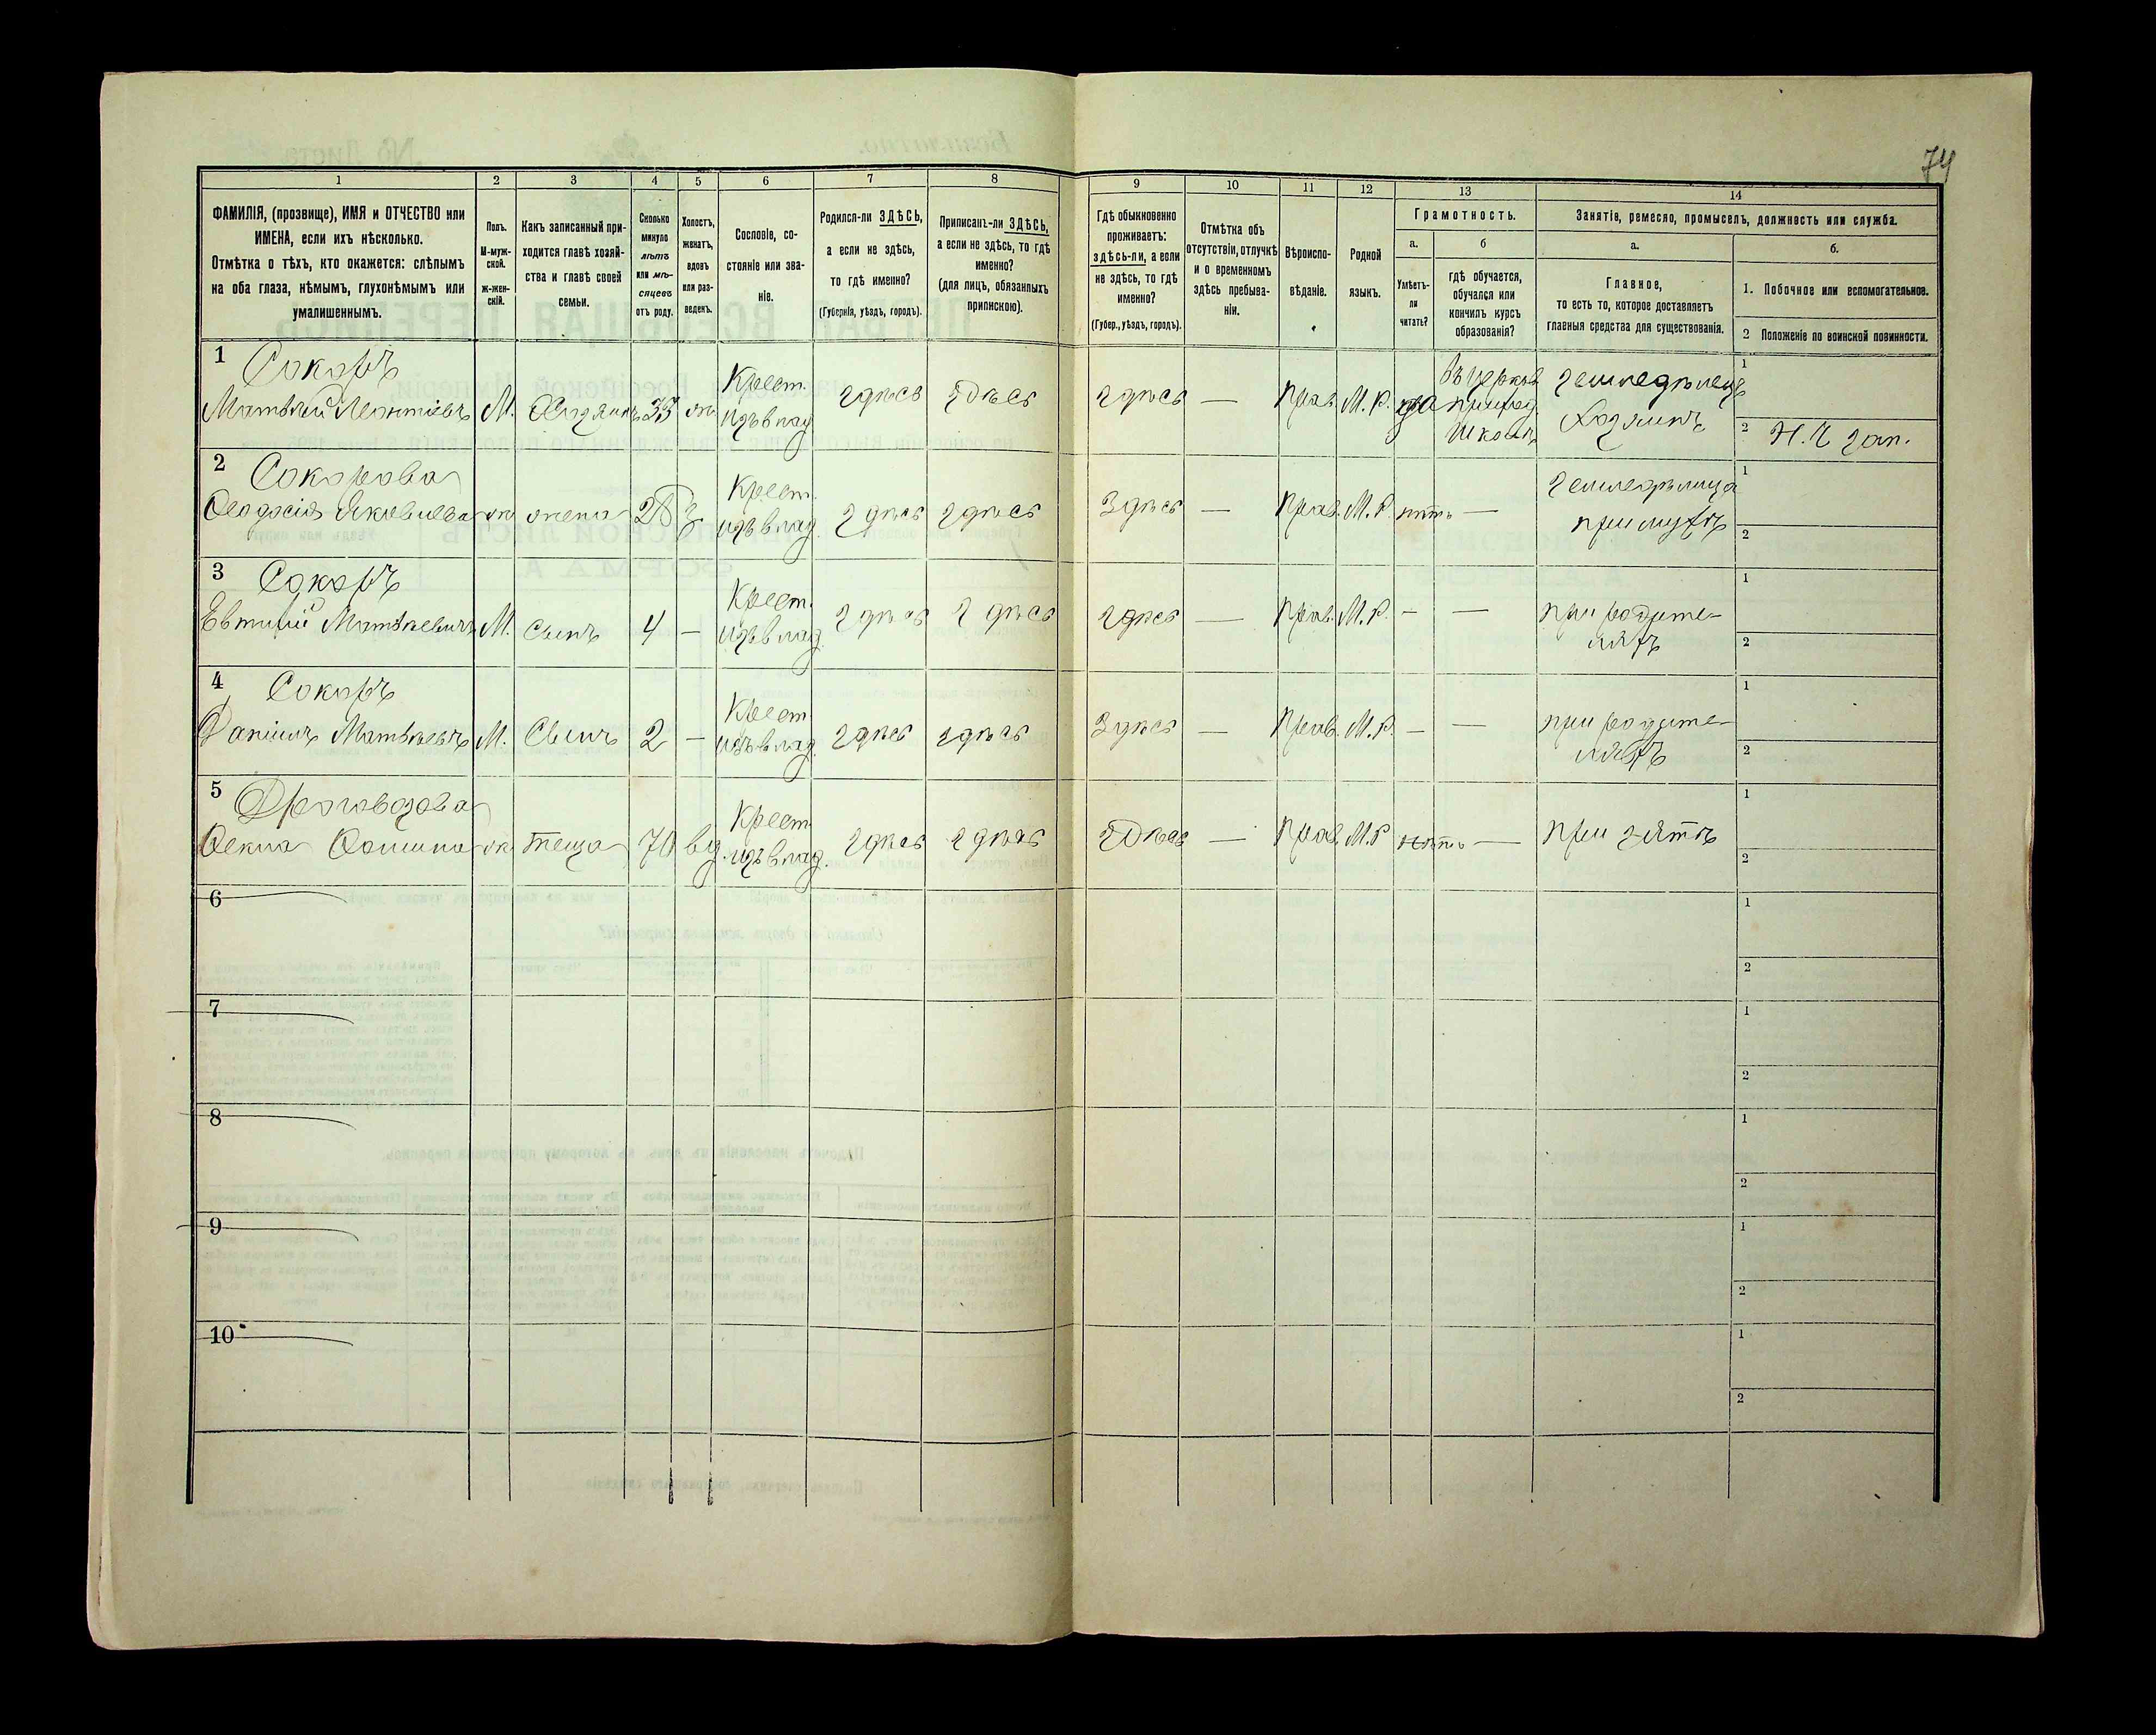 74
1 2 3 4 5 6 7 8 9 10 11 12 13 14
ФАМИЛІЯ, (прозвище), ИМЯ и ОТЧЕСТВО или
ИМЕНА, если ихъ нѣсколько.
Отмѣтка о тѣхъ, кто окажется: слѣпымъ
на оба глаза, нѣмымъ, глухонѣмымъ или
умалишеннымъ.
Полъ.
М-муж-
ской.
Ж-жен-
скій.
Какъ записанный при-
ходится главѣ хозяй-
ства и главѣ своей
семьи.
Сколько
минуло
лѣтъ
или мѣ-
сяцевъ
отъ роду.
Холостъ,
женатъ,
вдовъ
или раз-
веденъ.
Сословіе, со-
стояніе или зва-
ніе.
Родился-ли ЗДѢСЬ,
а если не здѣсь,
то гдѣ именно?
(Губернія, уѣздъ, городъ).
Приписанъ-ли ЗДѢСЬ,
а если не здѣсь, то гдѣ
именно?
(для лицъ, обязанныхъ
припискою).
Гдѣ обыкновенно
проживаетъ:
здѣсь-ли, а если
не здѣсь, то гдѣ
именно?
(Губер., уѣздъ, городъ).
Отмѣтка объ
отсутствіи, отлучкѣ
и о временномъ
здѣсь пребыва-
ніи.
Вѣроиспо-
вѣданіе.
Родной
языкъ.
Грамотность.
а.
Умѣетъ-
ли
читать?
б
гдѣ обучается,
обучался или
кончилъ курсъ
образованія?
Занятіе, ремесло, промыселъ, должность или служба.
а.
Главное,
то есть то, которое доставляетъ
главныя средства для существованія.
б.
1. Побочное или вспомогательное.
2 Положеніе по воинской повинности.
1 Сокоръ
Матвѣй Леонтіевъ М. Хозяинъ 35 ж. Крест. изъ влад. здѣсь здѣсь здѣсь — Прав. М. Р. да
въ церков.
приход.
школѣ
земледѣлецъ
Хозяинъ
1
2 Н. Ч зап.
2 Сокорова
Ѳеодосія Яковлева ж жена 28 з. Крест. изъ влад. здѣсь здѣсь Здѣсь — Прав. М. Р. нѣтъ —
земледѣлица
при мужѣ
1
2
3 Сокоръ
Евтихій Матвѣевичъ М. Сынъ 4 — Крест. изъ влад. здѣсь здѣсь здѣсь — Прав. М. Р. — —
при родите-
ляхъ
1
2
4 Сокоръ
Даніилъ Матвѣевъ М. Сынъ 2 — Крест. изъ влад. здѣсь здѣсь Здѣсь — Прав. М. Р. — —
при родите-
ляхъ
1
2
5 Дроговозова
Ѳекла Ѳомина ж Теща 70 вд. Крест. изъ влад. здѣсь здѣсь здѣсь — Прав. М. Р нѣтъ —
при зятѣ
1
2
6
1
2
7
1
2
8
1
2
9
1
2
10
1
2